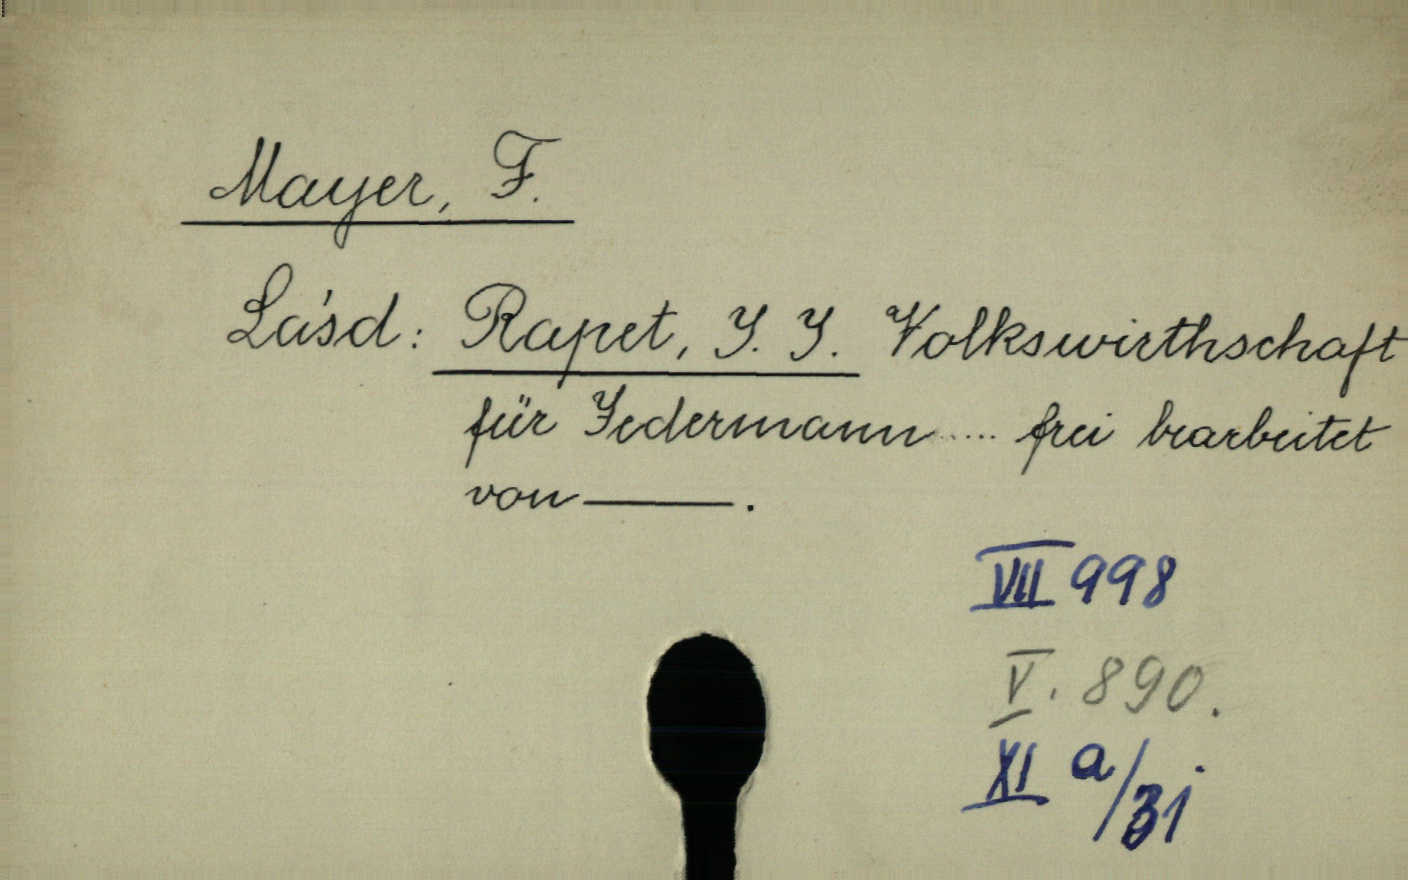 Mayer, F.
Lásd: Rapet, J. J. Volkswirthschaft
für Jedermann..... frei bearbeitet
von ———.
VII 998
V. 890.
XI a/31